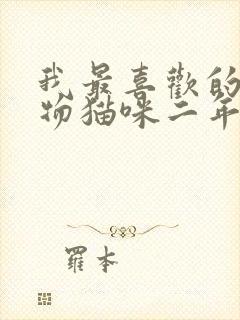 我最喜歡的
物猫咪二年
羅本